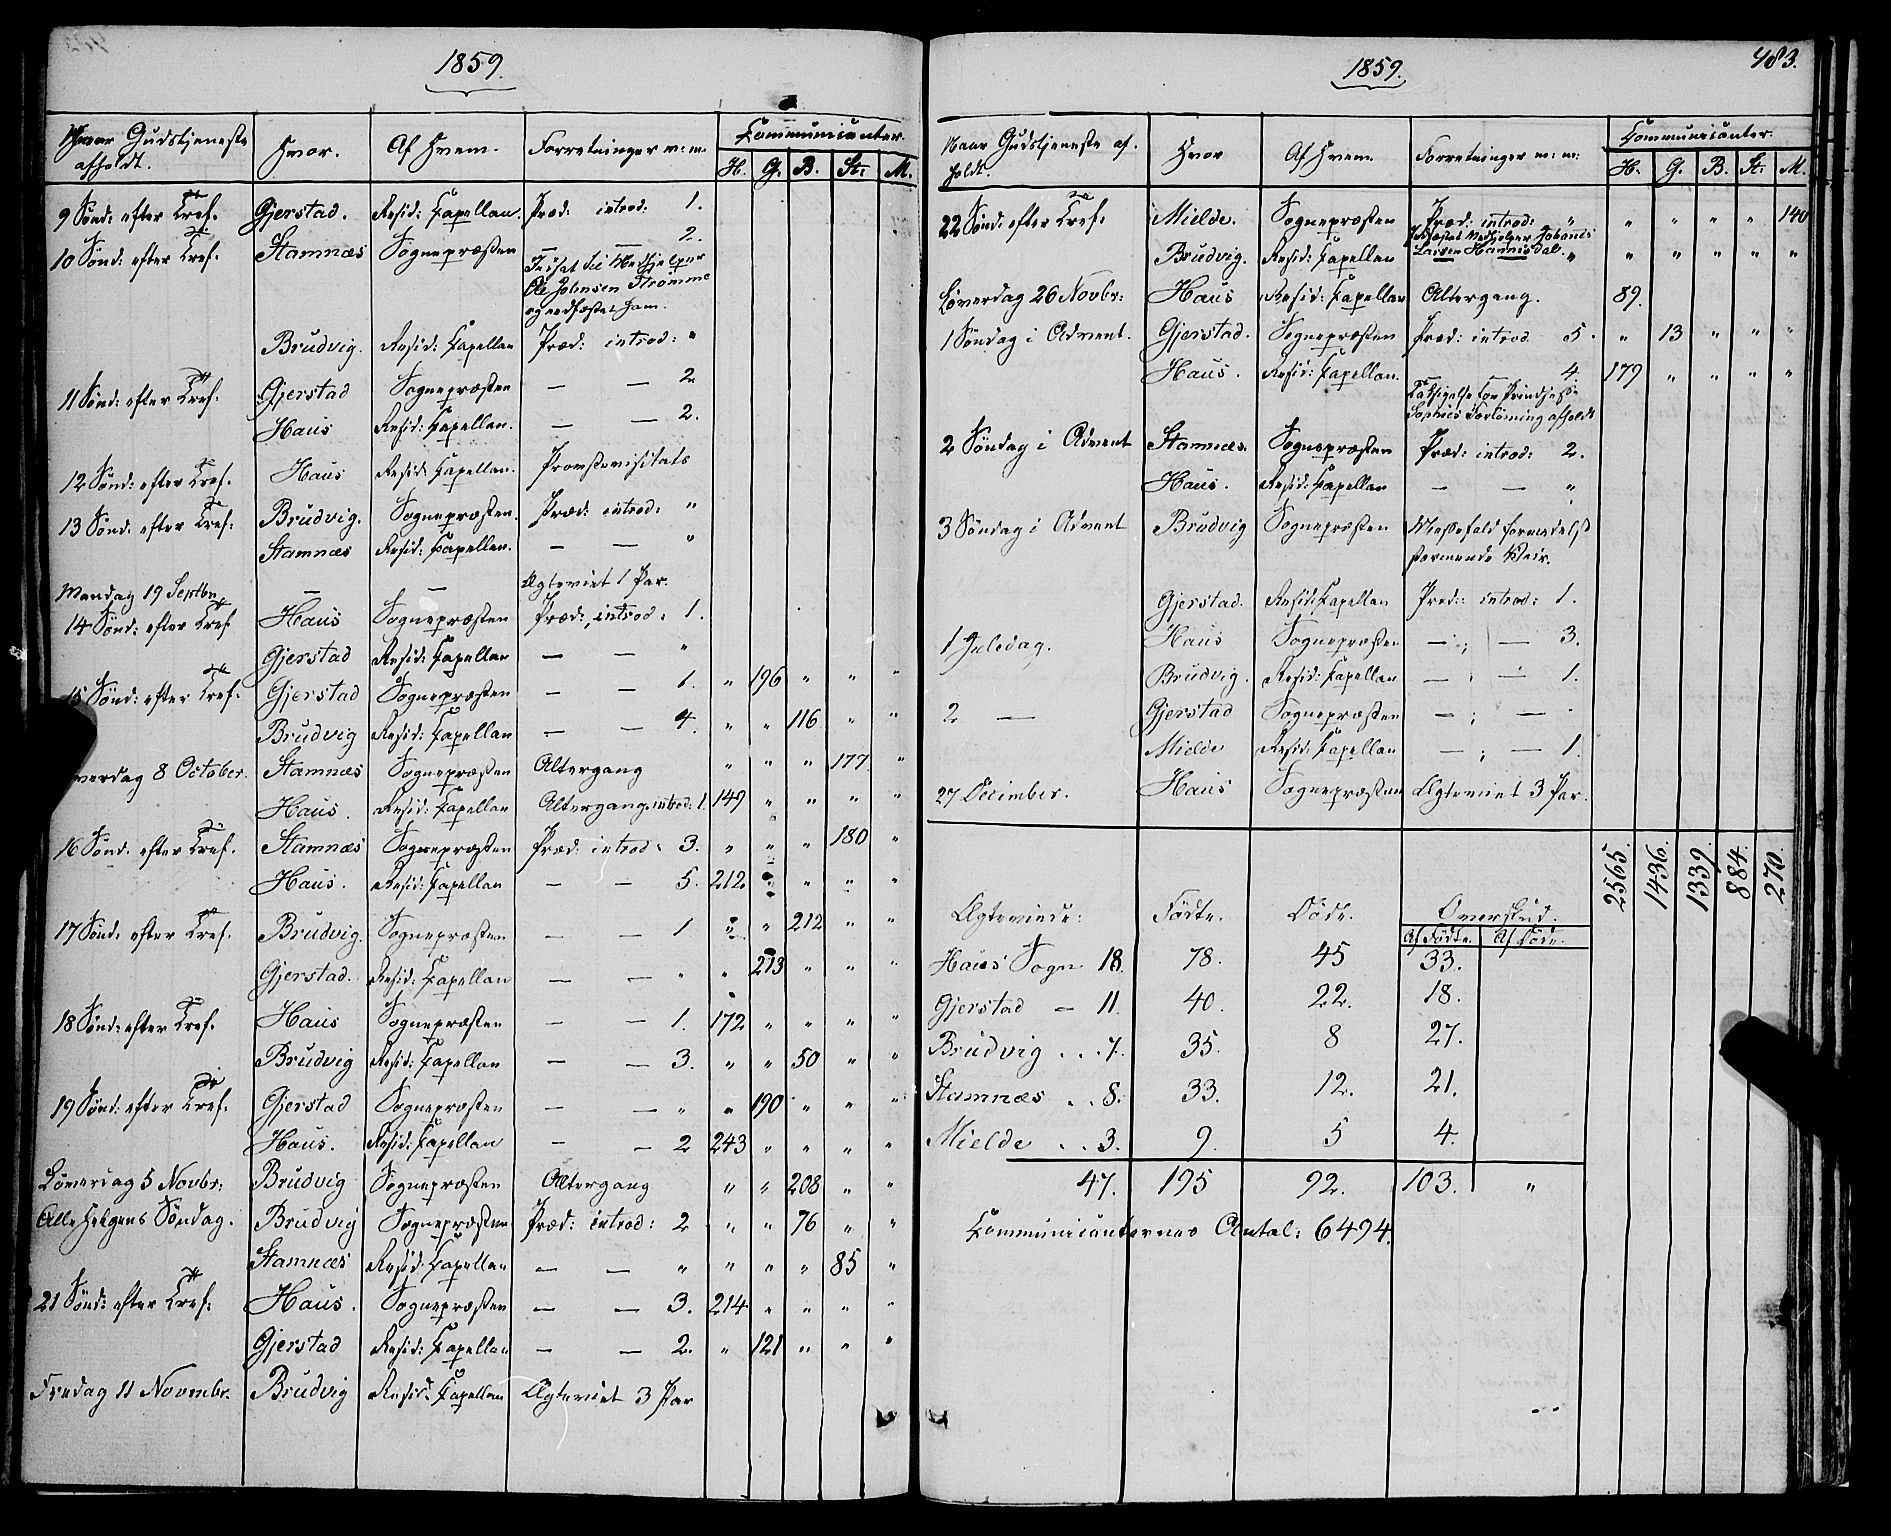 1859.
Naar Gudstjeneste afholdt. Hvor. Af Hvem. Forretninger m: m: Communicanter.
H. G. B. St: M.
9 Sønd: efter Tref. Gjerstad. Resid: Capellan. Præd: introd: 1.
10 Sønd: efter Tref. Stamnæs Sognepræsten — — 2.
Indsat til Medhjelper
Ole Johnsen Strømme
og edfæstet ham.
Brudvig. Resid: Capellan Præd: introd: "
11 Sønd: efter Tref. Gjerstad Sognepræsten — — 2
Haus Resid: Capellan. — — 2.
12 Sønd: efter Tref. Haus Resid: Capellan. Provstevisitats
13 Sønd: efter Tref: Brudvig. Sognepræsten. Præd: introd: "
Stamnæs Resid: Capellan. — — "
Mandag 19 Septbr. — — Ægteviet 1 Par.
14 Sønd: efter Tref Haus Sognepræsten Præd:, introd: 1.
Gjerstad Resid: Capellan — — "
15 Sønd: efter Tref. Gjerstad Sognepræsten — — 1. " 196 " " "
Brudvig Resid: Capellan — — 4. " " 116 " "
verdag 8 October. Stamnæs Sognepræsten Altergang " " " 177 "
Haus. Resid: Capellan Altergang introd: 1. 149 " " " "
16 Sønd: efter Tref. Stamnæs Sognepræsten Præd: introd: 3. " " " 180 "
Haus. Resid: Capellan — — 5. 212 " " " "
17 Sønd: efter Tref. Brudvig. Sognepræsten — — 1 " " 212 " "
Gjerstad. Resid: Capellan — — " " 213 " " "
18 Sønd: efter Tref. Haus Sognepræsten — — 1. 172 " " " "
Brudvig Resid: Capellan — — 3. " " 50 " "
19 Sønd: efter Tref. Gjerstad Sognepræsten — — " " 190 " " "
Haus. Resid: Capellan — — 2 243 " " " "
Løverdag 5 Novbr: Brudvig Sognepræsten Altergang " " 208 " "
Alle Helgens Søndag. Brudvig Sognepræsten Præd: introd: 2 " " 76 " "
Stamnæs Resid: Capellan — — " " " " 85 "
21 Sønd: efter Tref: Haus. Sognepræsten — — 3. 214 " " " "
Gjerstad Resid: Capellan — — 2. " 121 " " "
Fredag 11 Novmbr. Brudvig Resid: Capellan Ægteviet 3 Par
1859. 483.
Naar Gudstjeneste afholdt. Hvor Af Hvem. Forretninger m: m: Communicanter.
H. G. B. St: M.
22 Sønd: efter Tref: Mielde. Sognepræsten Præd: introd: " " " " " 140
Medhjelper Johanes
Larsen Hannisdal.
Brudvig. Resid: Capellan " " " " " "
Løverdag 26 Novbr: Haus Resid: Capellan Altergang. 89.
1 Søndag i Advent. Gjerstad. Sognepræsten Præd: introd 5. " 13 " " "
Haus. Resid: Capellan. — — 4. 179 " " " "
Taksigelse for Prindsesse
Sophies Forløsning afholdt
2 Søndag i Advent Stamnæs. Sognepræsten Præd: introd: 2.
Haus. Resid: Capellan — — "
3 Søndag i Advent Brudvig Sognepræsten Messefald formedelst
stormende Veir.
Gjerstad. Resid: Capellan Præd: introd: 1.
1 Juledag. Haus Sognepræsten — ; — 3.
Brudvig. Resid: Capellan — ; — 1.
2 — Gjerstad Sognepræsten — ; — "
Mielde Resid: Capellan — ; — 1.
27 December. Haus Sognepræsten Ægteviet 3 Par.
2565. 1436. 1339. 884. 270.
Ægteviede: Fødte. Døde. Overskud.
Af Fødte. Af Døde.
Haus Sogn 18. 78. 45 33.
Gjerstad — 11. 40. 22. 18.
Brudvig . . 7. 35. 8 27.
Stamnæs . . 8. 33. 12. 21.
Mielde . . 3. 9. 5 4.
47. 195 92. 103. "
Communicanternes Antal: 6494.